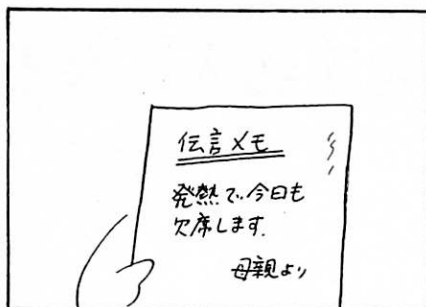 伝言メモ
発熱で今日も
欠席します.
母親より